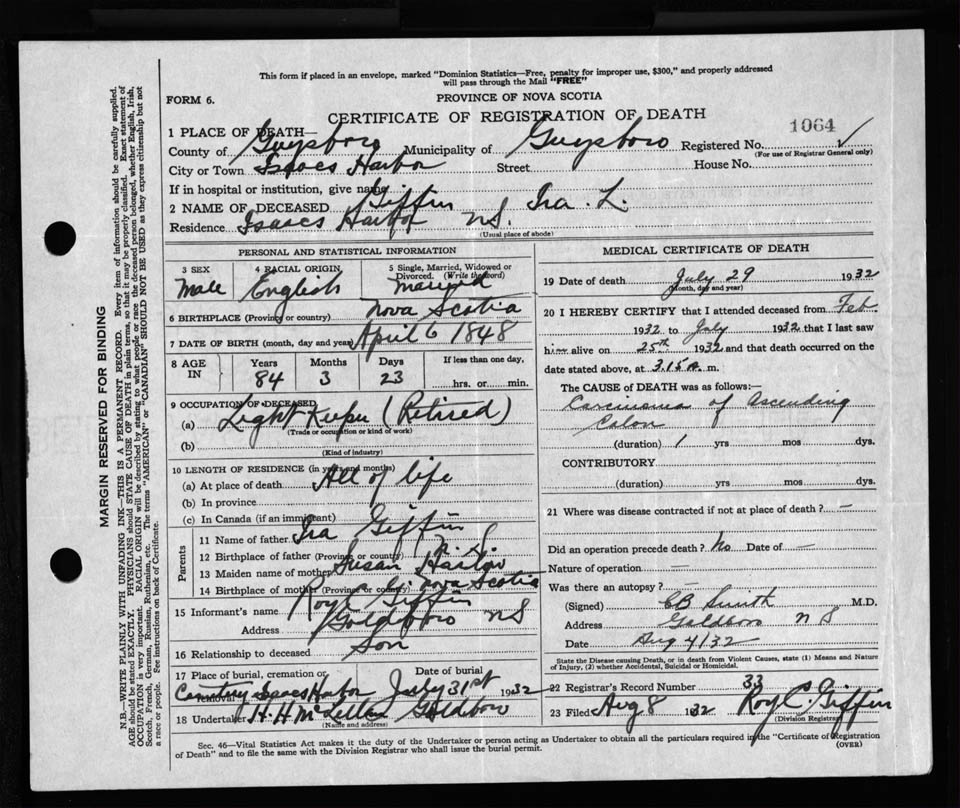 This form if placed in an envelope, marked "Dominion Statistics—Free, penalty for improper use, $300," and properly addressed
will pass through the Mail "FREE"
FORM 6.
PROVINCE OF NOVA SCOTIA
CERTIFICATE OF REGISTRATION OF DEATH
1064
1 PLACE OF DEATH—
County of Guysboro Municipality of Guysboro Registered No.
(For use of Registrar General only)
City or Town Isaacs Harbor Street House No.
If in hospital or institution, give name
2 NAME OF DECEASED Giffin Ira L.
Residence Isaacs Harbor NS.
(Usual place of abode)
PERSONAL AND STATISTICAL INFORMATION
3 SEX Male
4 RACIAL ORIGIN English
5 Single, Married, Widowed or Divorced. (Write the word) Married
6 BIRTHPLACE (Province or country) Nova Scotia
7 DATE OF BIRTH (month, day and year) April 6 1848
8 AGE IN Years 84 Months 3 Days 23 If less than one day, hrs. or min.
9 OCCUPATION OF DECEASED
(a) Light Keeper (Retired)
(Trade or occupation or kind of work)
(b)
(Kind of industry)
10 LENGTH OF RESIDENCE (in years and months)
(a) At place of death All of life
(b) In province
(c) In Canada (if an immigrant)
Parents
11 Name of father Ira Giffin
12 Birthplace of father (Province or country) N. S.
13 Maiden name of mother Susan
14 Birthplace of mother (Province or country) Nova Scotia
15 Informant's name Roy C. Giffin
Address Goldboro NS
16 Relationship to deceased Son
17 Place of burial, cremation or removal Cemetery Isaacs Harbor Date of burial July 31st 1932
18 Undertaker H. H. McLellan Goldboro
(Name and address)
MEDICAL CERTIFICATE OF DEATH
19 Date of death July 29 1932
(Month, day and year)
20 I HEREBY CERTIFY that I attended deceased from Feb.
1932 to July 1932 that I last saw
him alive on 25th 1932 and that death occurred on the
date stated above, at 3.15 a. m.
The CAUSE of DEATH was as follows:—
Carcinoma of Ascending
Colon
(duration) 1 yrs mos dys.
CONTRIBUTORY
(duration) yrs mos dys.
21 Where was disease contracted if not at place of death? —
Did an operation precede death? No Date of —
Nature of operation —
Was there an autopsy? —
(Signed) CB Smith M.D.
Address Goldboro N S
Date Aug 4/32
State the Disease causing Death, or in death from Violent Causes, state (1) Means and Nature
of Injury, (2) whether Accidental, Suicidal or Homicidal.
22 Registrar's Record Number 33
23 Filed Aug 8 1932 Roy C. Giffin
(Division Registrar)
Sec. 46—Vital Statistics Act makes it the duty of the Undertaker or person acting as Undertaker to obtain all the particulars required in the "Certificate of Registration
of Death" and to file the same with the Division Registrar who shall issue the burial permit.
(OVER)
MARGIN RESERVED FOR BINDING
N.B.—WRITE PLAINLY WITH UNFADING INK—THIS IS A PERMANENT RECORD. Every item of information should be carefully supplied.
AGE should be stated EXACTLY. PHYSICIANS should STATE CAUSE OF DEATH in plain terms, so that it may be properly classified. Exact statement of
OCCUPATION is very important. RACIAL ORIGIN will be described by stating to what people or race the deceased person belonged, whether English, Irish,
Scotch, French, German, Russian, Ruthenian, etc. The terms "AMERICAN" or "CANADIAN" SHOULD NOT BE USED as they express citizenship but not
a race or people. See instructions on back of Certificate.